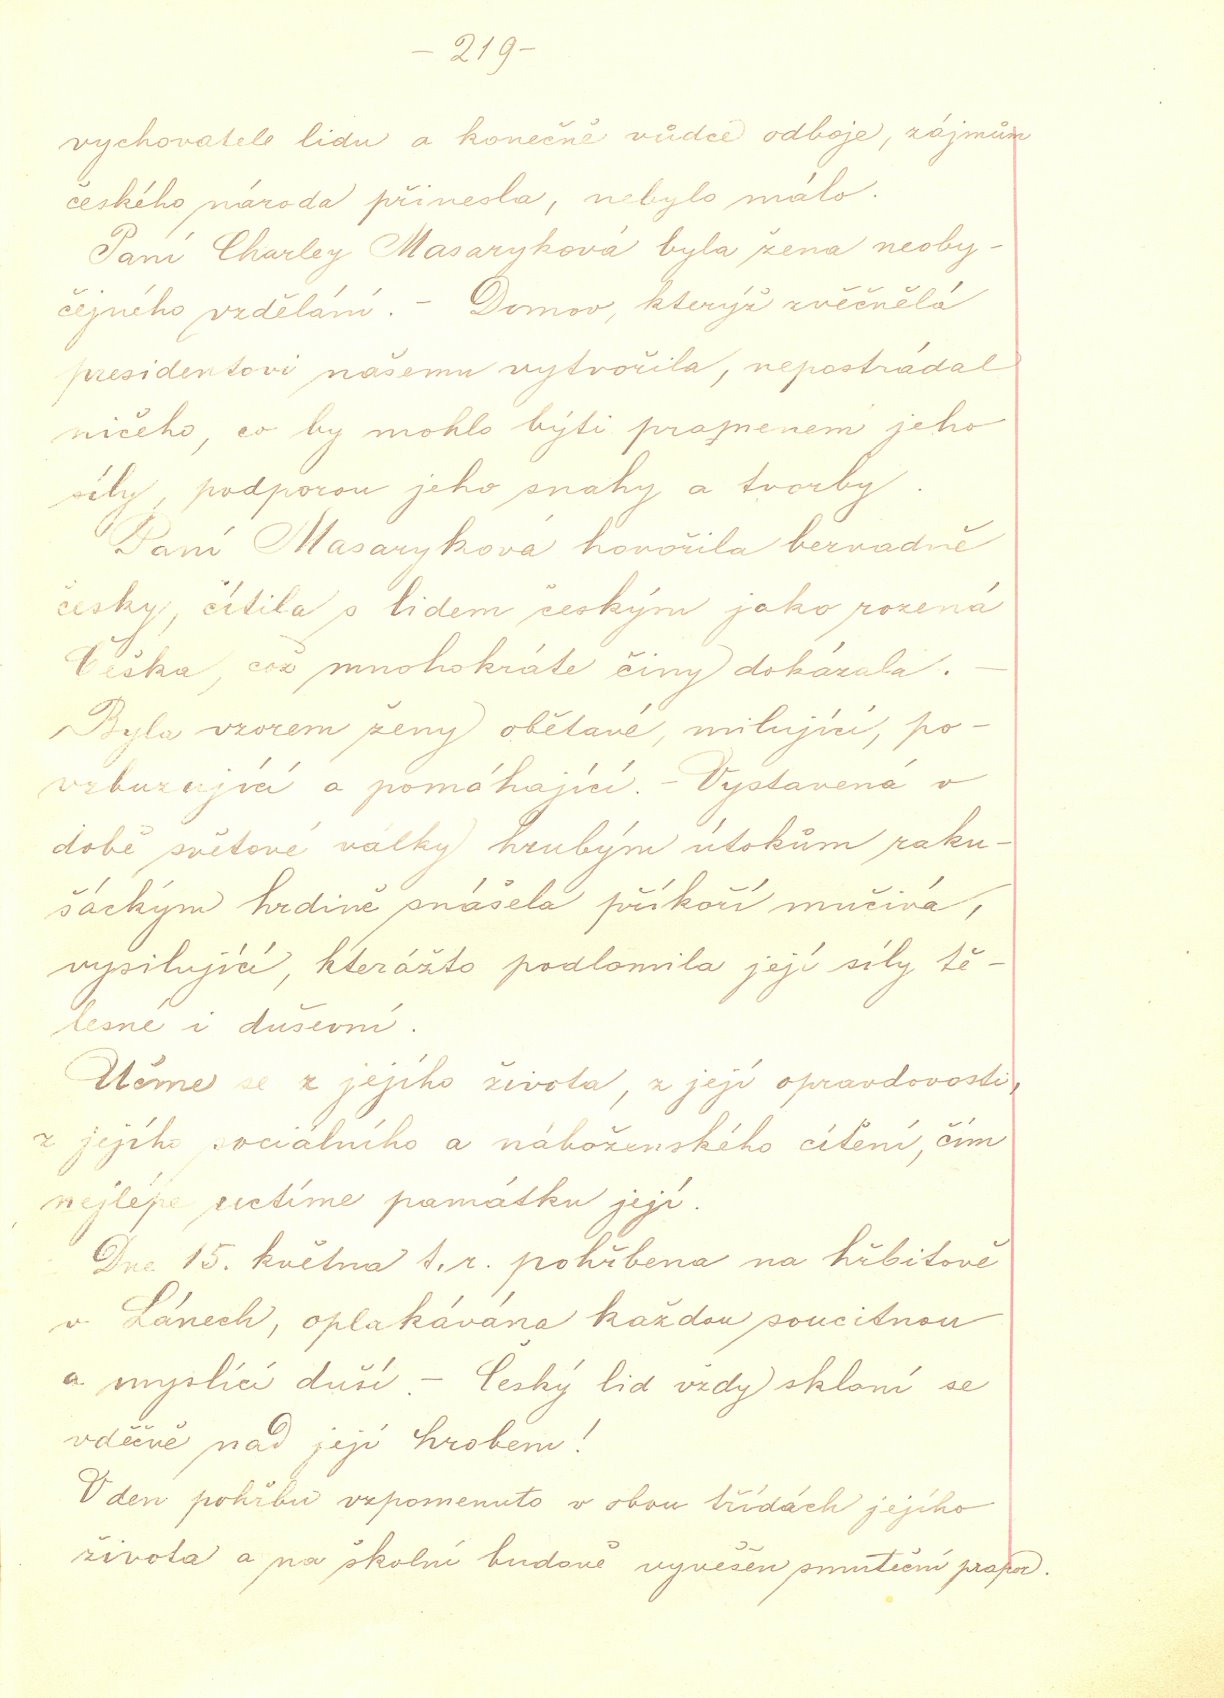 - 219 -
vychovatele lidu a konečně vůdce odboje, zájmům
českého národa přinesla, nebylo málo.
Paní Charley Masaryková byla žena neoby-
čejného vzdělání. - Domov, kterýž zvěčnělá
presidentovi našemu vytvořila, nepostrádal
ničeho, co by mohlo býti pramenem jeho
síly, podporou jeho snahy a tvorby.
Paní Masaryková hovořila bezvadně
česky, cítila s lidem českým jako rozená
Češka, což mnohokráte činy dokázala. -
Byla vzorem ženy obětavé, milující, po-
vzbuzující a pomáhající. - Vystavena v
době světové války hrubým útokům raku-
šáckým hrdině snášela příkoří mučivá,
vysilující, kterážto podlomila její síly tě-
lesné i duševní.
Učme se z jejího života, z její opravdovosti,
z jejího sociálního a náboženského cítění, čím
nejlépe uctíme památku její.
Dne 15. května t. r. pohřbena na hřbitově
v Lánech, oplakávána každou soucitnou
a myslící duší. - Český lid vždy skloní se
vděčně nad její hrobem!
V den pohřbu vzpomenuto v obou třídách jejího
života a na školní budově vyvěšen smuteční prapor.